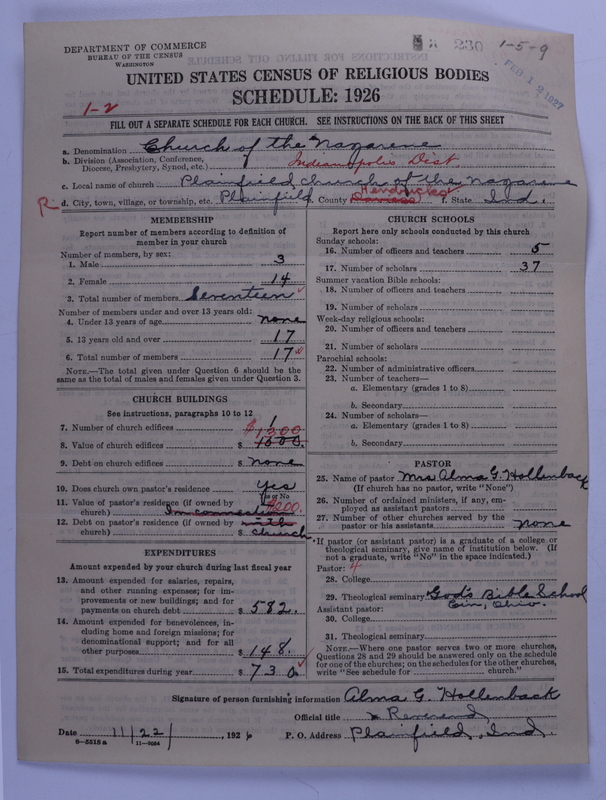 DEPARTMENT OF COMMERCE
BUREAU OF THE CENSUS
WASHINGTON
230 1-5-9
FEB 12 1927
UNITED STATES CENSUS OF RELIGIOUS BODIES
SCHEDULE: 1926
1-2
FILL OUT A SEPARATE SCHEDULE FOR EACH CHURCH. SEE INSTRUCTIONS ON THE BACK OF THIS SHEET
a. Denomination Church of the Nazarene
b. Division (Association, Conference, Diocese, Presbytery, Synod, etc.) Indianapolis Dist
c. Local name of church Plainfield church of the Nazarene
R d. City, town, village, or township, etc. Plainfield e. County Hendricks f. State Ind.
MEMBERSHIP
Report number of members according to definition of
member in your church
Number of members, by sex:
1. Male 3
2. Female 14
3. Total number of members Seventeen
Number of members under and over 13 years old:
4. Under 13 years of age none
5. 13 years old and over 17
6. Total number of members 17
NOTE.—The total given under Question 6 should be
same as the total of males and females given under Question 3.
CHURCH BUILDINGS
See instructions, paragraphs 10 to 12
7. Number of church edifices 1
$1300
8. Value of church edifices $ 1500.
9. Debt on church edifices $ none
10. Does church own pastor's residence yes
Yes or No
11. Value of pastor's residence (if owned by
church) In connection $200.
12. Debt on pastor's residence (if owned by with
church) $ church
EXPENDITURES
Amount expended by your church during last fiscal year
13. Amount expended for salaries, repairs,
and other running expenses; for im-
provements or new buildings; and for
payments on church debt $ 582.
14. Amount expended for benevolences, in-
cluding home and foreign missions; for
denominational support; and for all
other purposes $ 148.
15. Total expenditures during year $ 730
CHURCH SCHOOLS
Report here only schools conducted by this church
Sunday schools:
16. Number of officers and teachers 5
17. Number of scholars 37
Summer vacation Bible schools:
18. Number of officers and teachers
19. Number of scholars
Week-day religious schools:
20. Number of officers and teachers
21. Number of scholars
Parochial schools:
22. Number of administrative officers
23. Number of teachers—
a. Elementary (grades 1 to 8)
b. Secondary
24. Number of scholars—
a. Elementary (grades 1 to 8)
b. Secondary
PASTOR
25. Name of pastor Mrs Alma G. Hollenback
(If church has no pastor, write "None")
26. Number of ordained ministers, if any, em-
ployed as assistant pastors
27. Number of other churches served by the
pastor or his assistants none
If pastor (or assistant pastor) is a graduate of a college or
theological seminary, give name of institution below. (If
not a graduate, write "No" in the space indicated.)
Pastor: 4
28. College
29. Theological seminary God's Bible School
Cin, Ohio.
Assistant pastor:
30. College
31. Theological seminary
NOTE.—Where one pastor serves two or more churches,
Questions 28 and 29 should be answered only on the schedule
for one of the churches; on the schedules for the other churches,
write "See schedule for church."
Signature of person furnishing information Alma G. Hollenback
Official title Reverend
Date 11/22/, 1926 P. O. Address Plainfield, Ind.
8-5518a 11-9064